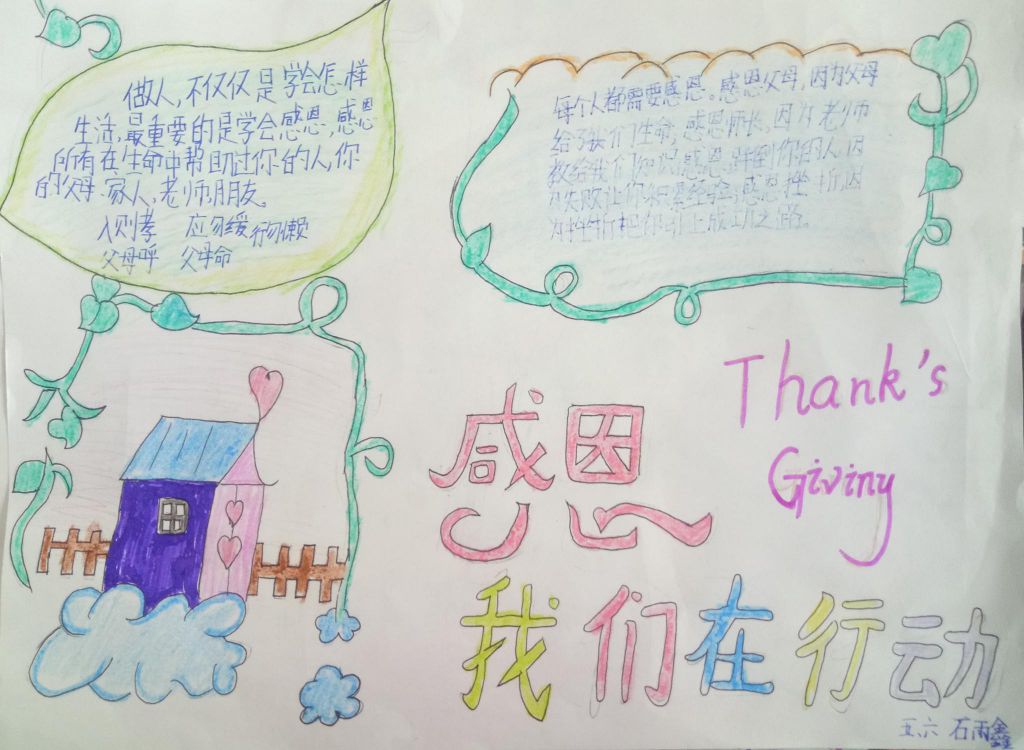 做人,不仅仅是学会怎样
生活,最重要的是学会感恩,感恩
所有在生命中帮助过你的人,你
的父母.家人,老师.朋友。
入则孝 应勿缓 行勿懒
父母呼 父母命
每个人都需要感恩。感恩父母,因为父母
给予我们生命;感恩师长,因为老师
教给我们知识;感恩 到你的人,因
为失败让你积累经验;感恩挫折,因
为挫折把你引上成功之路。
Thank's
Giviny
感恩
我们在行动
五.六 石雨鑫